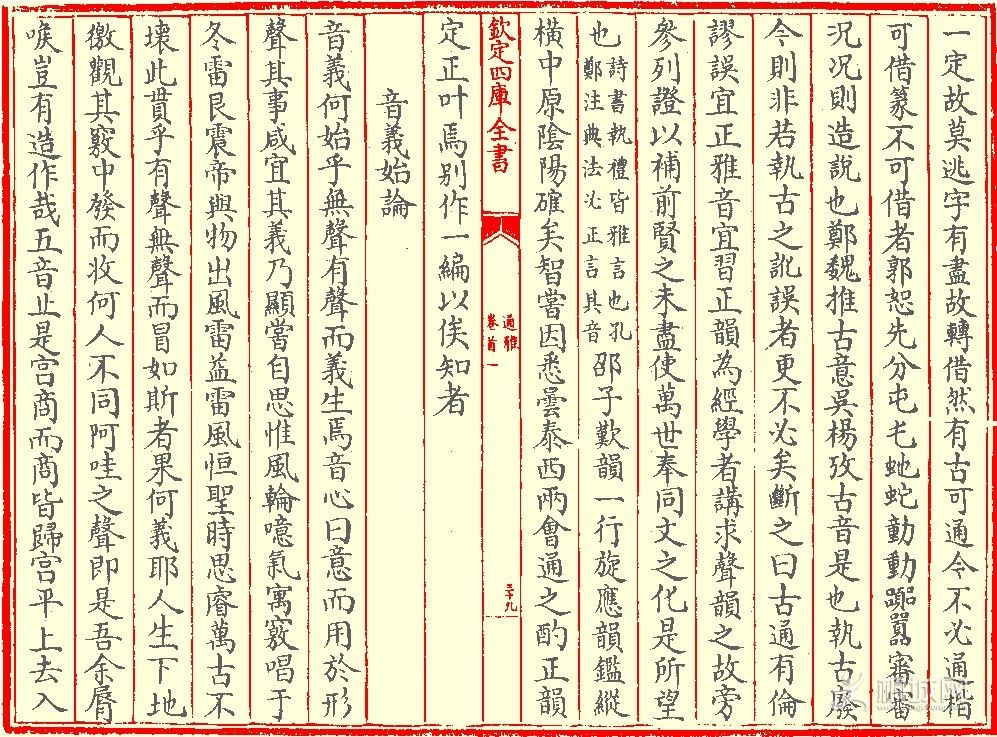 一定故莫逃字有盡故轉借然有古可通今不必通楷
可借篆不可借者郭恕先分屯乇虵蛇動動躢嚻審審
況况則造說也鄭魏推古意吳楊攷古音是也執古廢
今則非若執古之訛誤者更不必矣斷之曰古通有倫
謬誤宜正雅音宜習正韻為經學者講求聲韻之故旁
參列證以補前賢之未盡使萬世奉同文之化是所望
也詩書執禮皆雅言也孔鄭注典法必正言其音邵子歎韻一行旋應韻鑑縱
橫中原陰陽確矣智嘗因悉曇泰西兩會通之酌正韻
定正叶焉别作一編以俟知者
欽定四庫全書
通雅
卷首一
三十九
音義始論
音義何始乎無聲有聲而義生焉音心曰意而用於形
聲其事咸宜其義乃顯嘗自思惟風輪噫氣寓竅唱于
冬雷艮震帝與物出風雷益雷風恒聖時思睿萬古不
壞此貫乎有聲無聲而冒如斯者果何義耶人生下地
徼觀其竅中發而收何人不同阿哇之聲即是吾余脣
喉豈有造作哉五音止是宫商而商皆歸宫平上去入